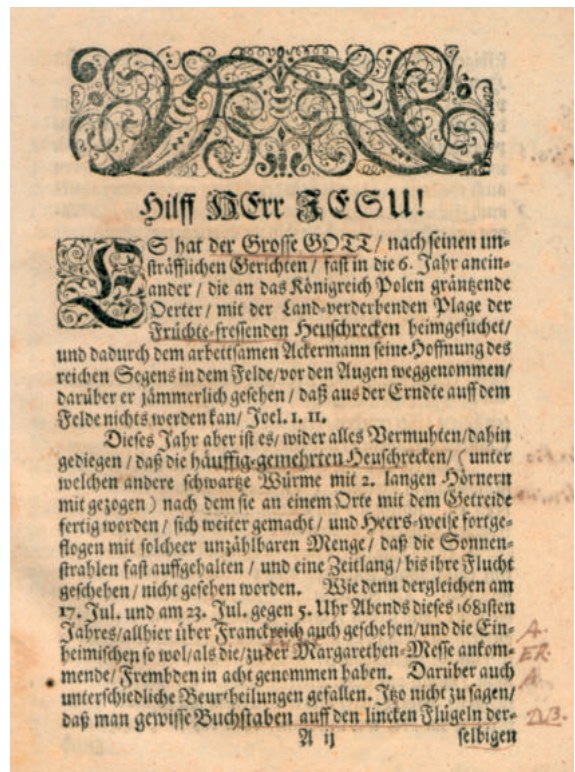 Hilff HErr JESU!
ES hat der Grosse GOTT / nach seinen un-
sträfflichen Gerichten / fast in die 6. Jahr anein-
ander / die an das Königreich Polen gräntzende
Oerter / mit der Land-verderbenden Plage der
Früchte-fressenden Heuschrecken heimgesuchet /
und dadurch dem arbeitsamen Ackermann seine Hoffnung des
reichen Segens in dem Felde / vor den Augen weggenommen /
darüber er jämmerlich gesehen / daß aus der Erndte auff dem
Felde nichts werden kan / Joel. 1. 11.
Dieses Jahr aber ist es / wider alles Vermuhten / dahin
gediegen / daß die häuffig-gemehrten Heuschrecken / ( unter
welchen andere schwartze Würme mit 2. langen Hörnern
mit gezogen ) nach dem sie an einem Orte mit dem Getreide
fertig worden / sich weiter gemacht / und Heers-weise fortge-
flogen mit solcher unzählbaren Menge / daß die Sonnen-
strahlen fast auffgehalten / und eine Zeitlang / bis ihre Flucht
geschehen / nicht gesehen worden. Wie denn dergleichen am
17. Jul. und am 23. Jul. gegen 5. Uhr Abends dieses 1681sten
Jahres / allhier über Franckreich auch geschehen / und die Ein- A.
heimischen so wol / als die / zu der Margarethen-Messe ankom- ER.
mende / Frembden in acht genommen haben. Darüber auch A.
unterschiedliche Beurtheilungen gefallen. Itzo nicht zu sagen /
daß man gewisse Buchstaben auff den lincken Flügeln der- NB.
A ij selbigen